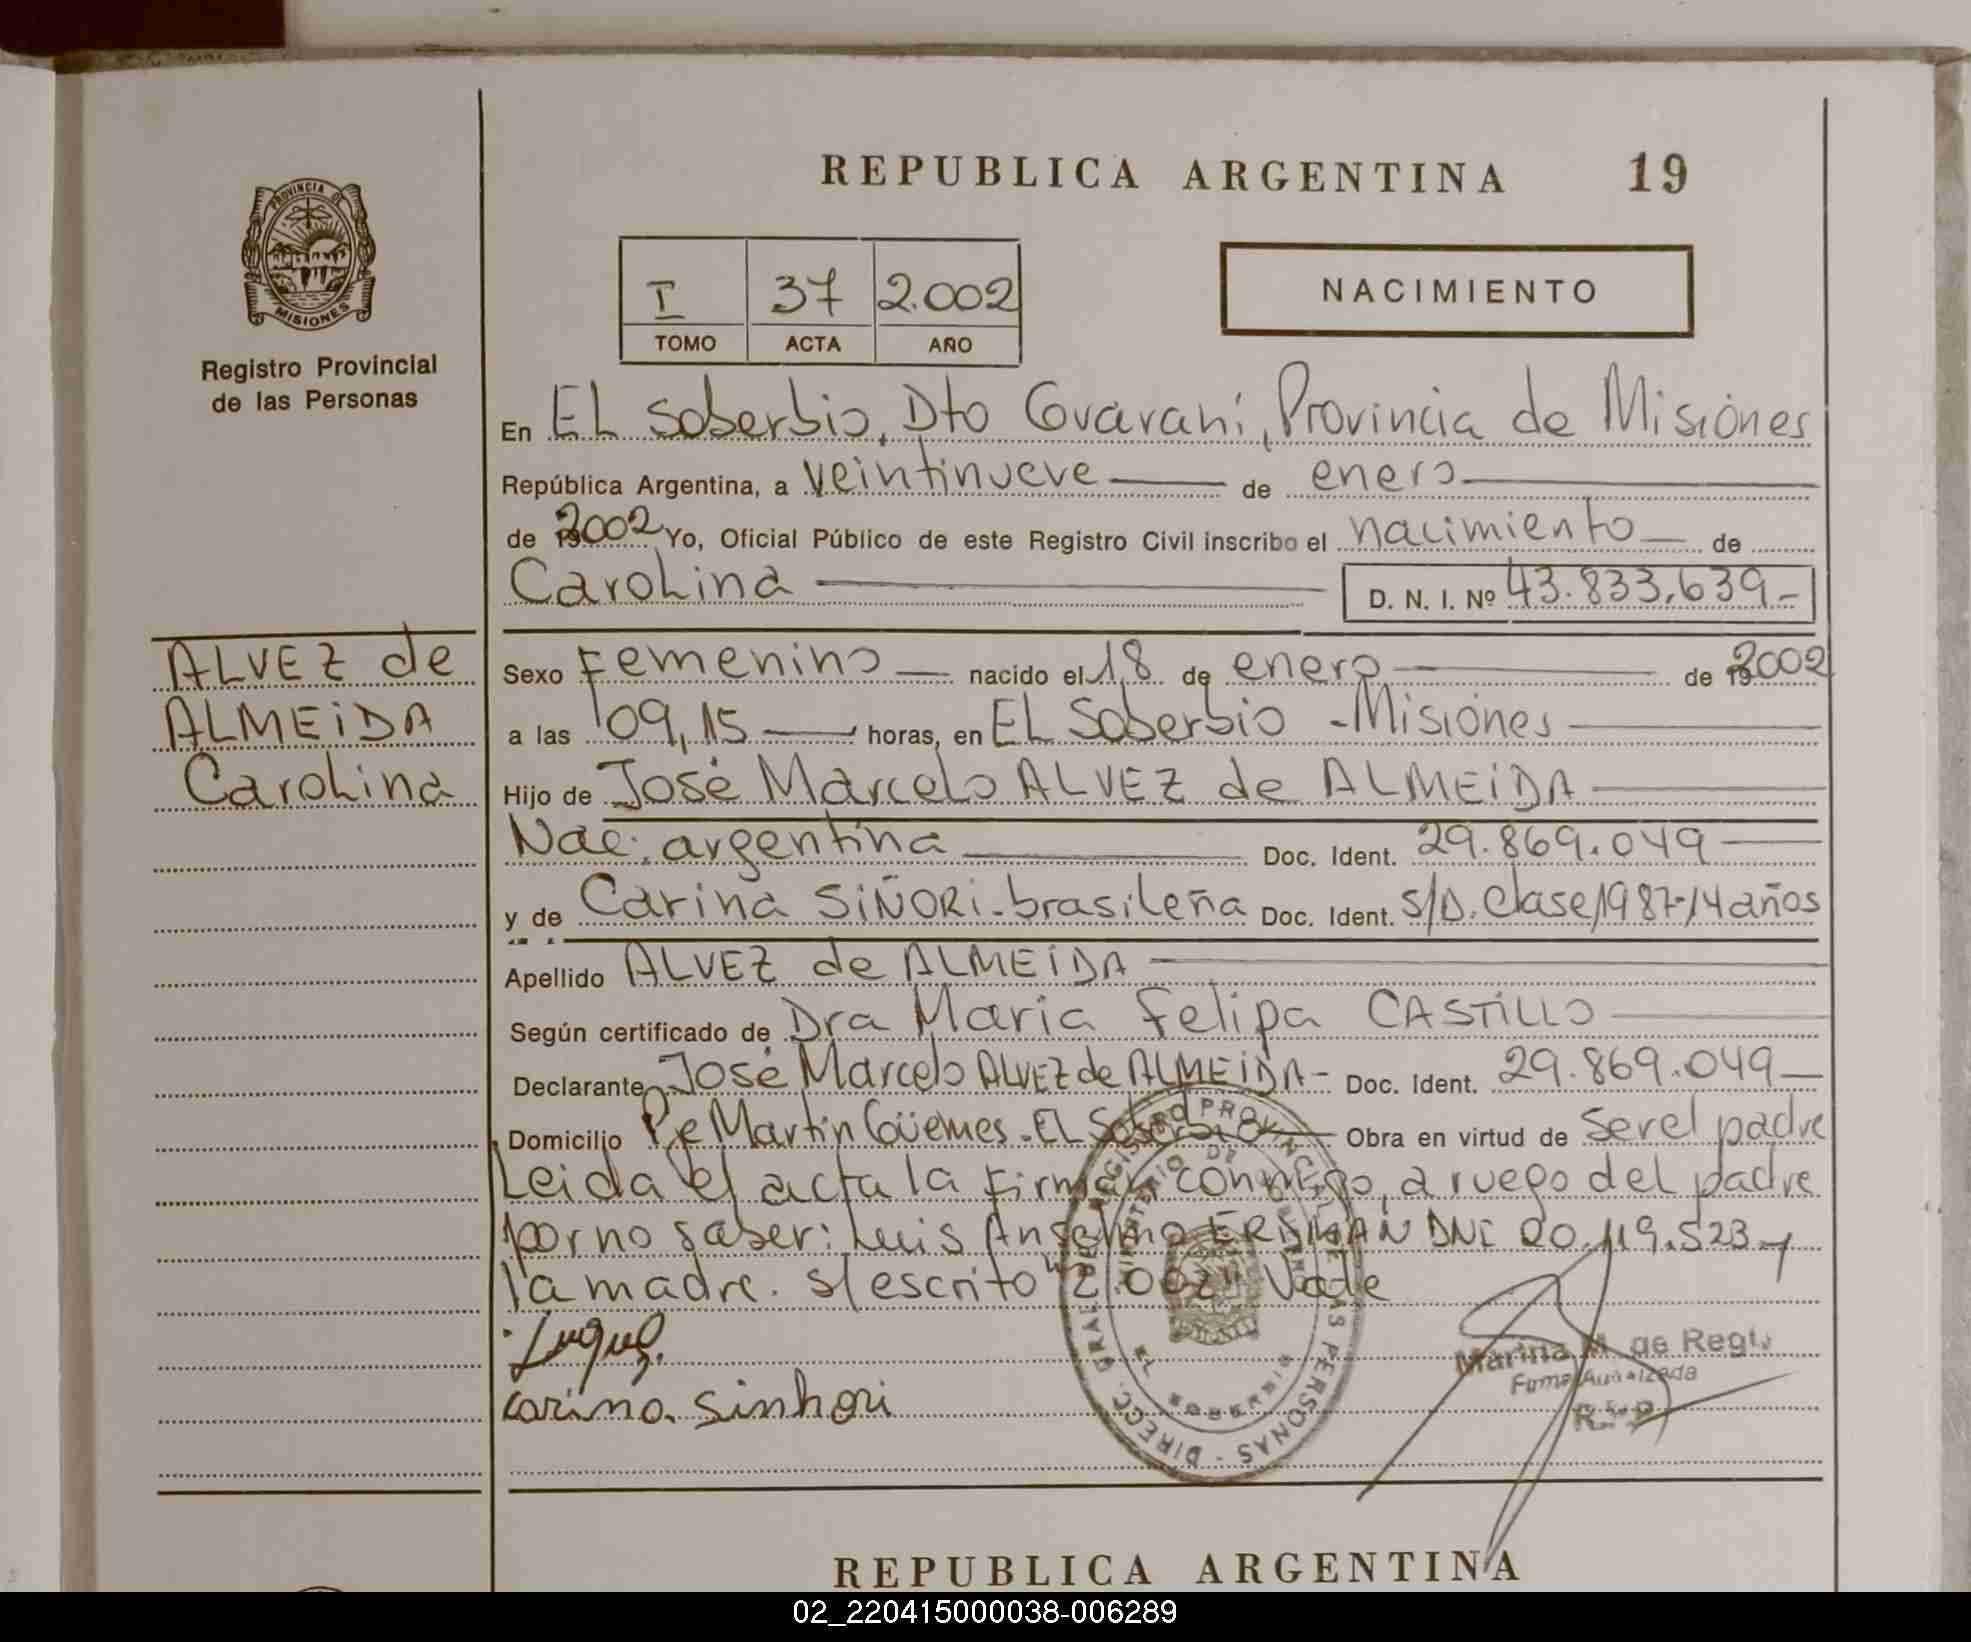 REPUBLICA ARGENTINA 19
PROVINCIA DE
MISIONES
Registro Provincial
de las Personas
I 37 2.002
TOMO ACTA AÑO
NACIMIENTO
En EL Soberbio, Dto Guaraní, Provincia de Misiones
República Argentina, a veintinueve de enero
de 2002 Yo, Oficial Público de este Registro Civil inscribo el nacimiento de
Carolina D. N. I. Nº 43.833.639-
ALVEZ de
ALMEiDA
Carolina
Sexo Femenino nacido el 18 de enero de 2002
a las 09,15 horas, en EL Soberbio - Misiones
Hijo de José Marcelo ALVEZ de ALMEiDA
Nac. argentina Doc. Ident. 29.869.049
y de Carina SiÑORi - brasileña Doc. Ident. S/D. Clase 1987-14 años
Apellido ALVEZ de ALMEiDA
Según certificado de Dra Maria Felipa CASTiLLO
Declarante José Marcelo ALVEZ de ALMEiDA - Doc. Ident. 29.869.049
Domicilio Pje Martin Güemes - EL Soberbio Obra en virtud de ser el padre
Leida el acta la firman conmigo, a ruego del padre
por no saber: Luis Anselmo DNI 20.119.523 y
la madre. s/ escrito "2.002" Vale
carina sinhori
Marina M. de Regi
REGISTRO PROVINCIAL DE LAS PERSONAS - DIRECC. GRAL.
MINISTERIO DE GOBIERNO
EL SOBERBIO
REPUBLICA ARGENTINA
02_220415000038-006289